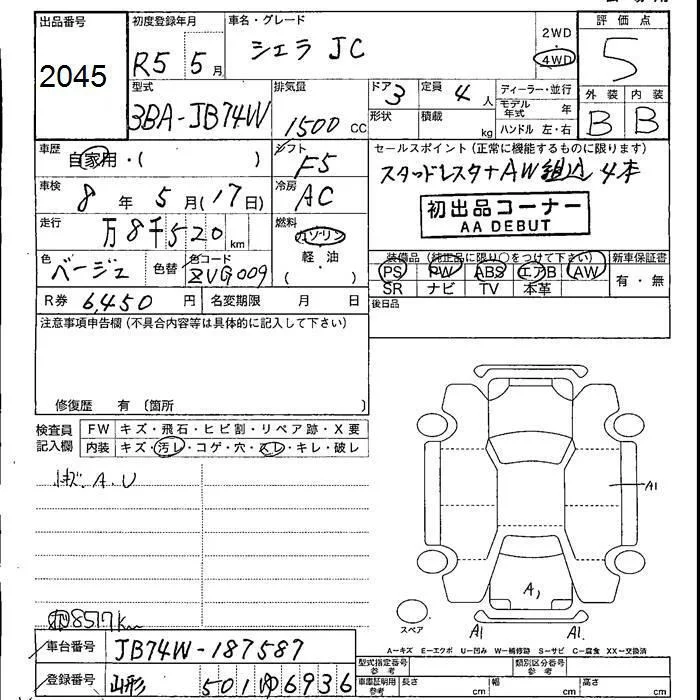 出品番号
2045
初度登録年月
R5 5月
車名・グレード
シエラ JC
2WD
・
4WD
評価点
5
型式
3BA-JB74W
排気量
1500 cc
ドア
3
形状
定員
4 人
積載
kg
ディーラー・並行
モデル年式 年
ハンドル 左・右
外装 内装
B B
車歴
自家用・( )
シフト
F5
セールスポイント(正常に機能するものに限ります)
スタッドレスタイヤAW組込 4本
初出品コーナー
AA DEBUT
車検
8年 5月(17日)
冷房
AC
走行
万8千520km
燃料
ガソリン
・
軽・油
( )
色
ベージュ
色替
色コード
ZVG009
装備品(純正品に限り○をつけて下さい)
PS PW ABS エアB AW
SR ナビ TV 本革
新車保証書
有・無
R券 6,450円
名変期限 月 日
後日品
注意事項申告欄(不具合内容等は具体的に記入して下さい)
修復歴 有 〔箇所 〕
検査員記入欄
FW キズ・飛石・ヒビ割・リペア跡・X要
内装 キズ・汚レ・コゲ・穴・スレ・キレ・破レ
小キズ.A.U
8517km
A1
A1
スペア
A1
A1
A―キズ E―エクボ U―凹み W―補修跡 S―サビ C―腐食 XX―交換済
車台番号 JB74W-187587
登録番号 山形 501 ゆ 6936
型式指定番号
参考
類別区分番号
参考
車庫証明用
参考
長さ cm
幅 cm
高さ cm